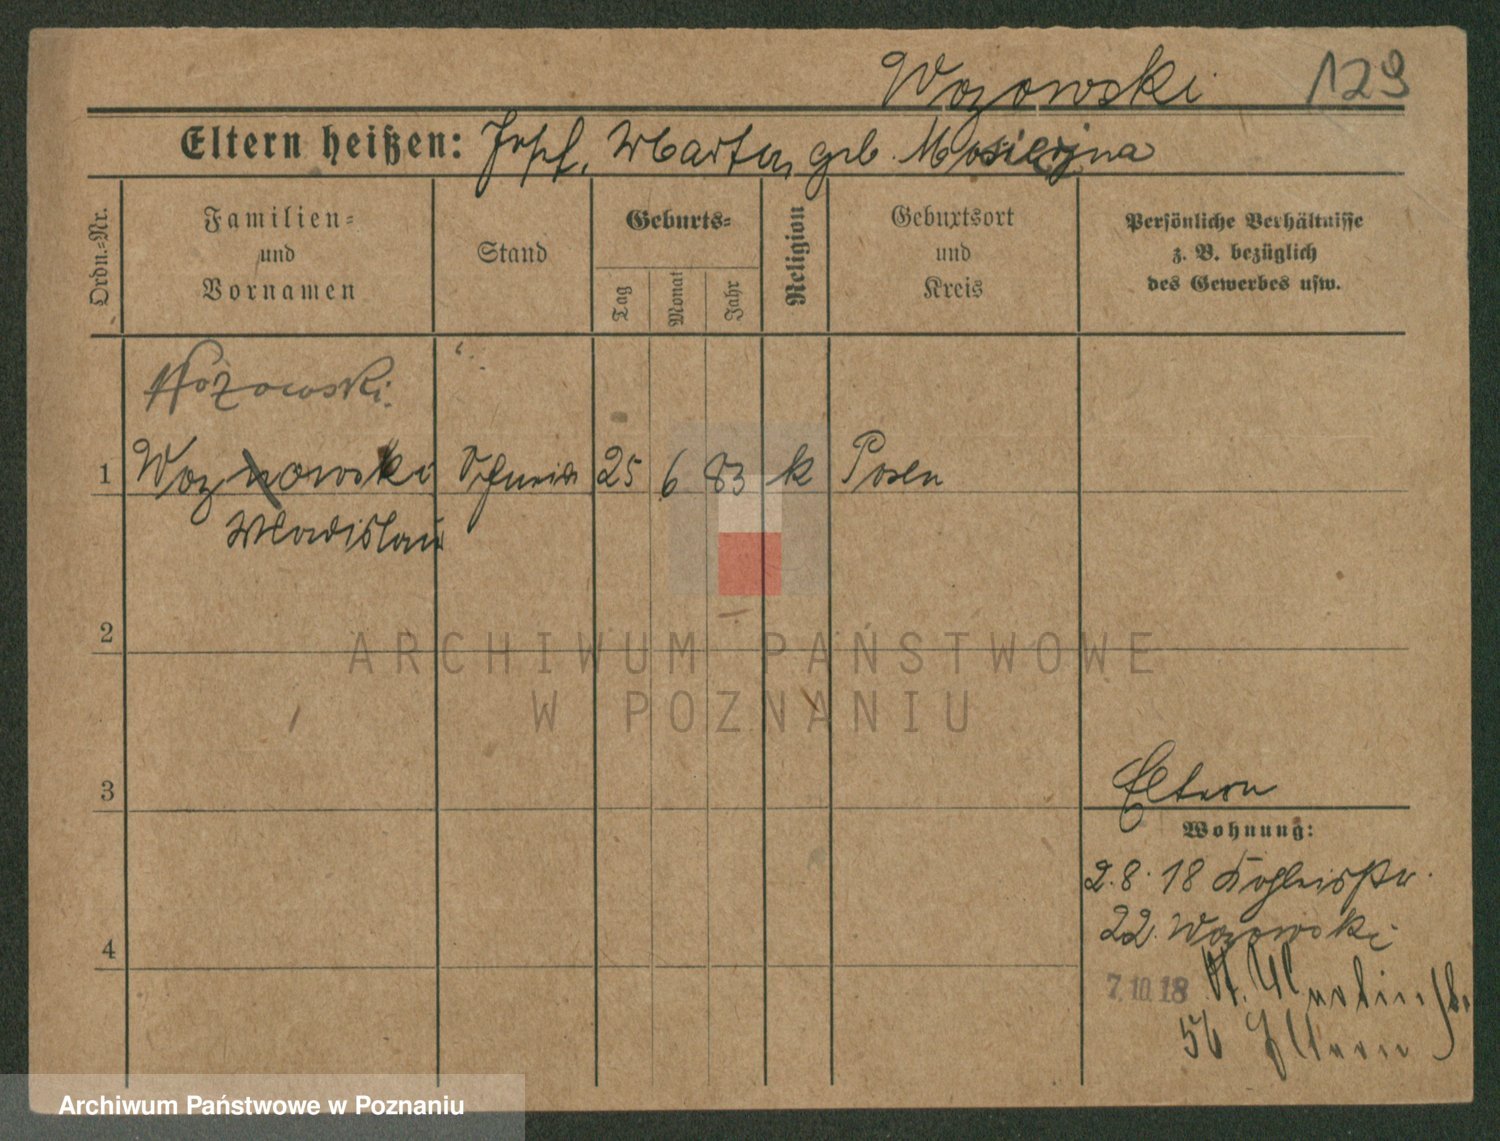 Wozowski 129
Eltern heißen: Josef, Martha, geb. Mosiezna
Ordn.-Nr.
Familien- und Vornamen
Stand
Geburts-
Tag
Monat
Jahr
Religion
Geburtsort und Kreis
Persönliche Verhältnisse z. B. bezüglich des Gewerbes usw.
Wozowski
1 Woznowski Schneid 25 6 83 k Posen
Wladislaus
2
3
4
Eltern
Wohnung:
2.8.18
22. Wozowski
7.10.18 St. Martinstr.
56 Eltern
ARCHIWUM PAŃSTWOWE
W POZNANIU
Archiwum Państwowe w Poznaniu